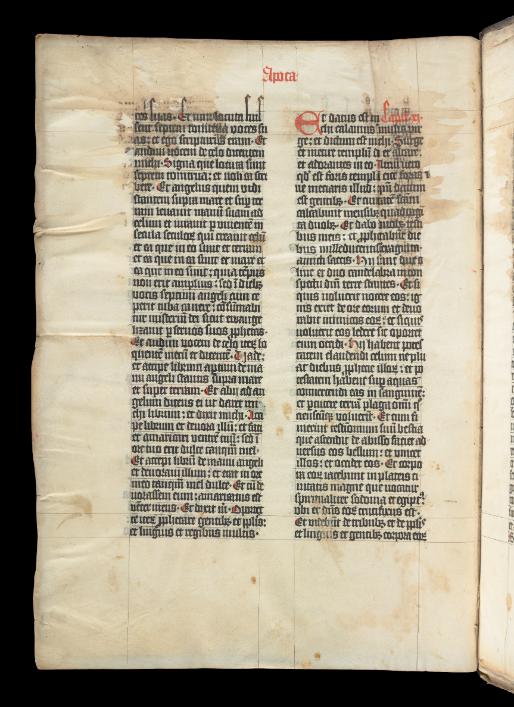 Apoca
ces suas. Et cum locuta fuis
sent septem tonitrua voces su
as: et ego scripturus eram. Et
audivi vocem de celo dicentem
michi. Signa que locuta sunt
septem tonitrua: et noli ea scri
bere. Et angelus quem vidi
stantem supra mare et sup ter
ram levavit manū suam ad
celum et iuravit p viventē in
secula seculoꝝ qui creavit celū
et ea que in eo sunt et terram
et ea que in ea sunt et mare et
ea que in eo sunt: quia tēpus
non erit amplius: sed ī diebꝰ
vocis septimi angeli cum ce
perit tuba canere: cōsūmabi
tur misteriū dei sicut evange
lizavit p servos suos ꝓphetas.
Et audivi vocem de celo iterū lo
quentē mecū et dicentē. Vade:
et accipe librum apertum de ma
nu angeli stantis supra mare
et super terram. Et abii ad an
gelum dicens ei ut daret mi
chi librum: et dixit michi. Acci
pe librum et devora illum: et faci
et amaricari ventrē tuū: sed ī
ore tuo erit dulce tanqm̄ mel.
Et accepi librū de manu angeli
et devoravi illum: et erat in ore
meo tanqm̄ mel dulce. Et cū de
vorassem eum: amaricatus est
vēter meus. Et dixit m̄. Oportet
te iterū ꝓphetare gentibꝫ et pplis:
et linguis et regibus multis.
Et datus est m̄ Capłm xi.
chi calamus similis vir
ge: et dictum est michi. Surge
et metire templū dei et altare:
et adorantes in eo. Atriū vero
qd̄ est foris templū eice foras
ne metiaris illud: qm̄ datum
est gentibꝫ. Et civitatē sanctā
calcabunt mensibꝫ quadragī
ta duobꝫ. Et dabo duobꝫ testi
bus meis: et ꝓphetabūt die
bus mille ducentis sexaginta:
amicti saccis. Hii sunt due o
live et duo candelabra in con
spectu dn̄i terre stantes. Et si
quis voluerit nocere eos: ig
nis exiet de ore eorum et devo
rabit inimicos eoꝝ: et si quis
voluerit eos ledere sic oportet
eum occidi. Hii habent potes
tatem claudendi celum ne plu
at diebus ꝓphetie ipsoꝝ: et po
testatem habent sup aquas
convertendi eas in sanguinē:
et percutere terrā plaga omī q
cienscūqꝫ voluerīt. Et cum fi
nierint testimonium suū bestia
que ascendit de abisso faciet ad
versus eos bellum: et vincet
illos: et occidet eos. Et corpo
ra eoꝝ iacebunt in plateis ci
vitatis magne que vocatur
spiritualiter sodoma et egiptꝰ
ubi et dn̄s eoꝝ crucifixus est.
Et videbūt de tribubꝫ et de pplis
et linguis et gentibꝫ corpora eoꝝ